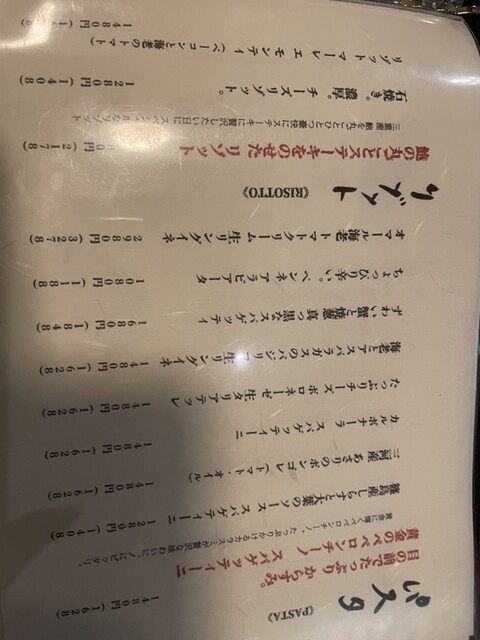 パスタ
《PASTA》
目の前でたっぷりからすみ。
黄金のペペロンチーノ スパゲッティーニ 1480円 (1628)
黄金に輝くペペロンチーノ。たっぷりかけるカラスミが贅沢な味わいに。〆にピッタリ。
篠島産 しらすと大葉のソース スパゲティーニ 1280円 (1408)
三河産 あさりのボンゴレ (トマト・オイル) 1480円 (1628)
カルボナーラ スパゲッティーニ 1480円 (1628)
たっぷりチーズ ボロネーゼ 生タリアテッレ 1480円 (1628)
海老とアスパラガスのバジリコ 生リングイネ 1480円 (1628)
ずわい蟹と焼葱 真っ黒なスパゲッティ 1680円 (1848)
ちょっぴり辛い。ペンネアラビアータ 1080円 (1188)
オマール海老 トマトクリーム 生リングイネ 2980円 (3278)
リゾット
《RISOTTO》
鮑の丸ごとステーキをのせたリゾット 円 (2178)
三重産鮑を丸ごとひとつ豪快にステーキに 贅沢したい日に スペシャルなリゾット
石焼き。濃厚。チーズリゾット。 1280円 (1408)
リゾット マーレ エ モンティ (ベーコンと海老のトマト) 1480円